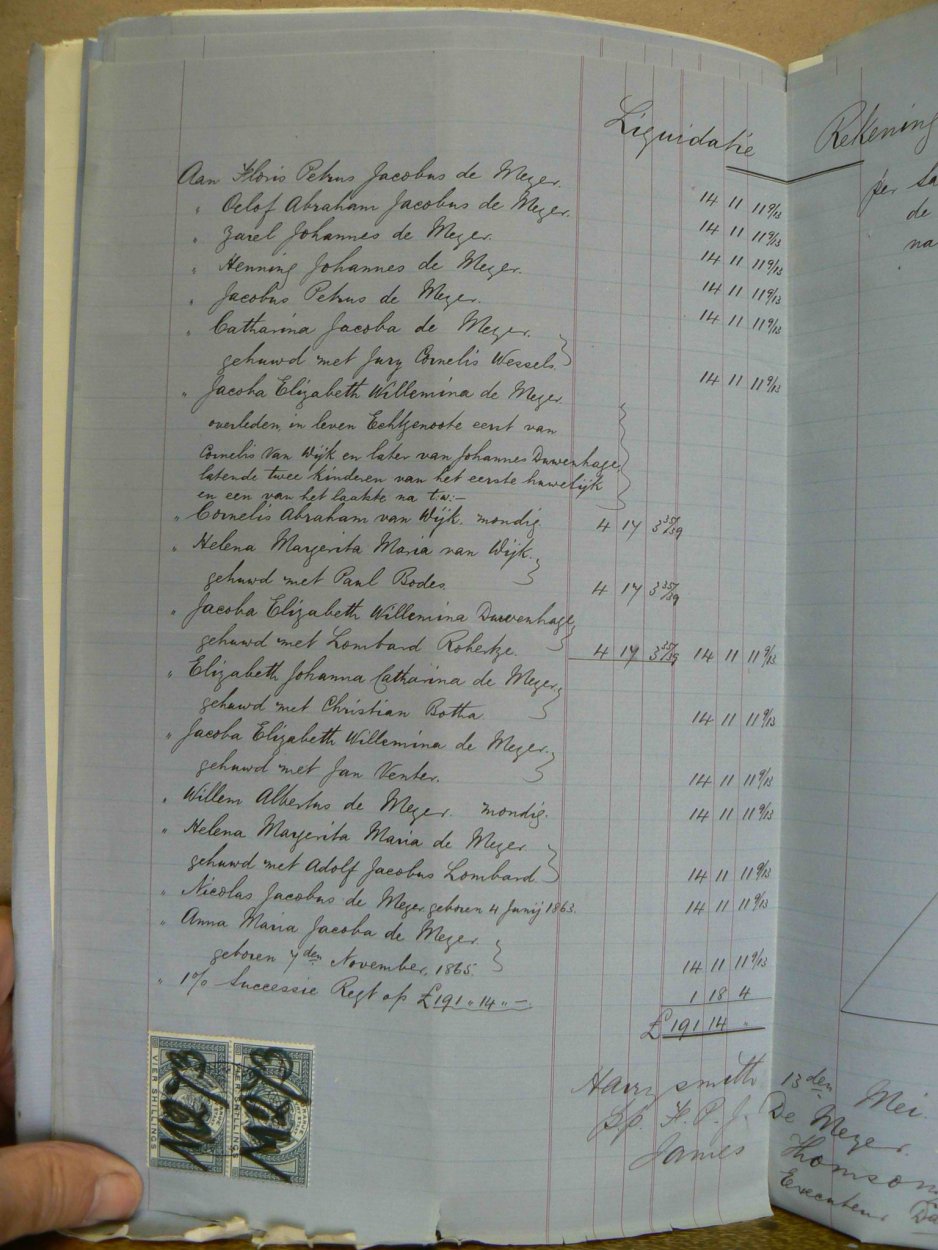 Liquidatie Rekening
per
de
na
Aan Floris Petrus Jacobus de Meyer. 14 11 11 9/13
" Oelof Abraham Jacobus de Meyer. 14 11 11 9/13
" Zarel Johannes de Meyer. 14 11 11 9/13
" Henning Johannes de Meyer. 14 11 11 9/13
" Jacobus Petrus de Meyer. 14 11 11 9/13
" Catharina Jacoba de Meyer.
gehuwd met Jury Cornelis Wessels. 14 11 11 9/13
" Jacoba Elizabeth Willemina de Meyer
overleden, in leven Echtgenoote eerst van
Cornelis Van Wijk en later van Johannes Duvenhage,
latende twee kinderen van het eerste huwelijk
en een van het laatste na t.w:-
" Cornelis Abraham van Wijk. mondig 4 17 3 35/39
" Helena Margerita Maria van Wijk.
gehuwd met Paul Bodes. 4 17 3 35/39
" Jacoba Elizabeth Willemina Duvenhage,
gehuwd met Lombard Rohertze. 4 17 3 35/39 14 11 11 9/13
" Elizabeth Johanna Catharina de Meyer,
gehuwd met Christian Botha 14 11 11 9/13
" Jacoba Elizabeth Willemina de Meyer.
gehuwd met Jan Venter. 14 11 11 9/13
" Willem Albertus de Meyer. mondig. 14 11 11 9/13
" Helena Margerita Maria de Meyer.
gehuwd met Adolf Jacobus Lombard 14 11 11 9/13
" Nicolas Jacobus de Meyer geboren 4 Junij 1863. 14 11 11 9/13
" Anna Maria Jacoba de Meyer.
geboren 7den November, 1865. 14 11 11 9/13
" 1% Successie Regt op £191 " 14 " - 1 18 4
£ 191 14 "
VIER SHILLINGS
VIER SHILLINGS
Harrysmith 13den Mei.
pp. F. P. J. De Meyer.
James Thomson
Executeur Da